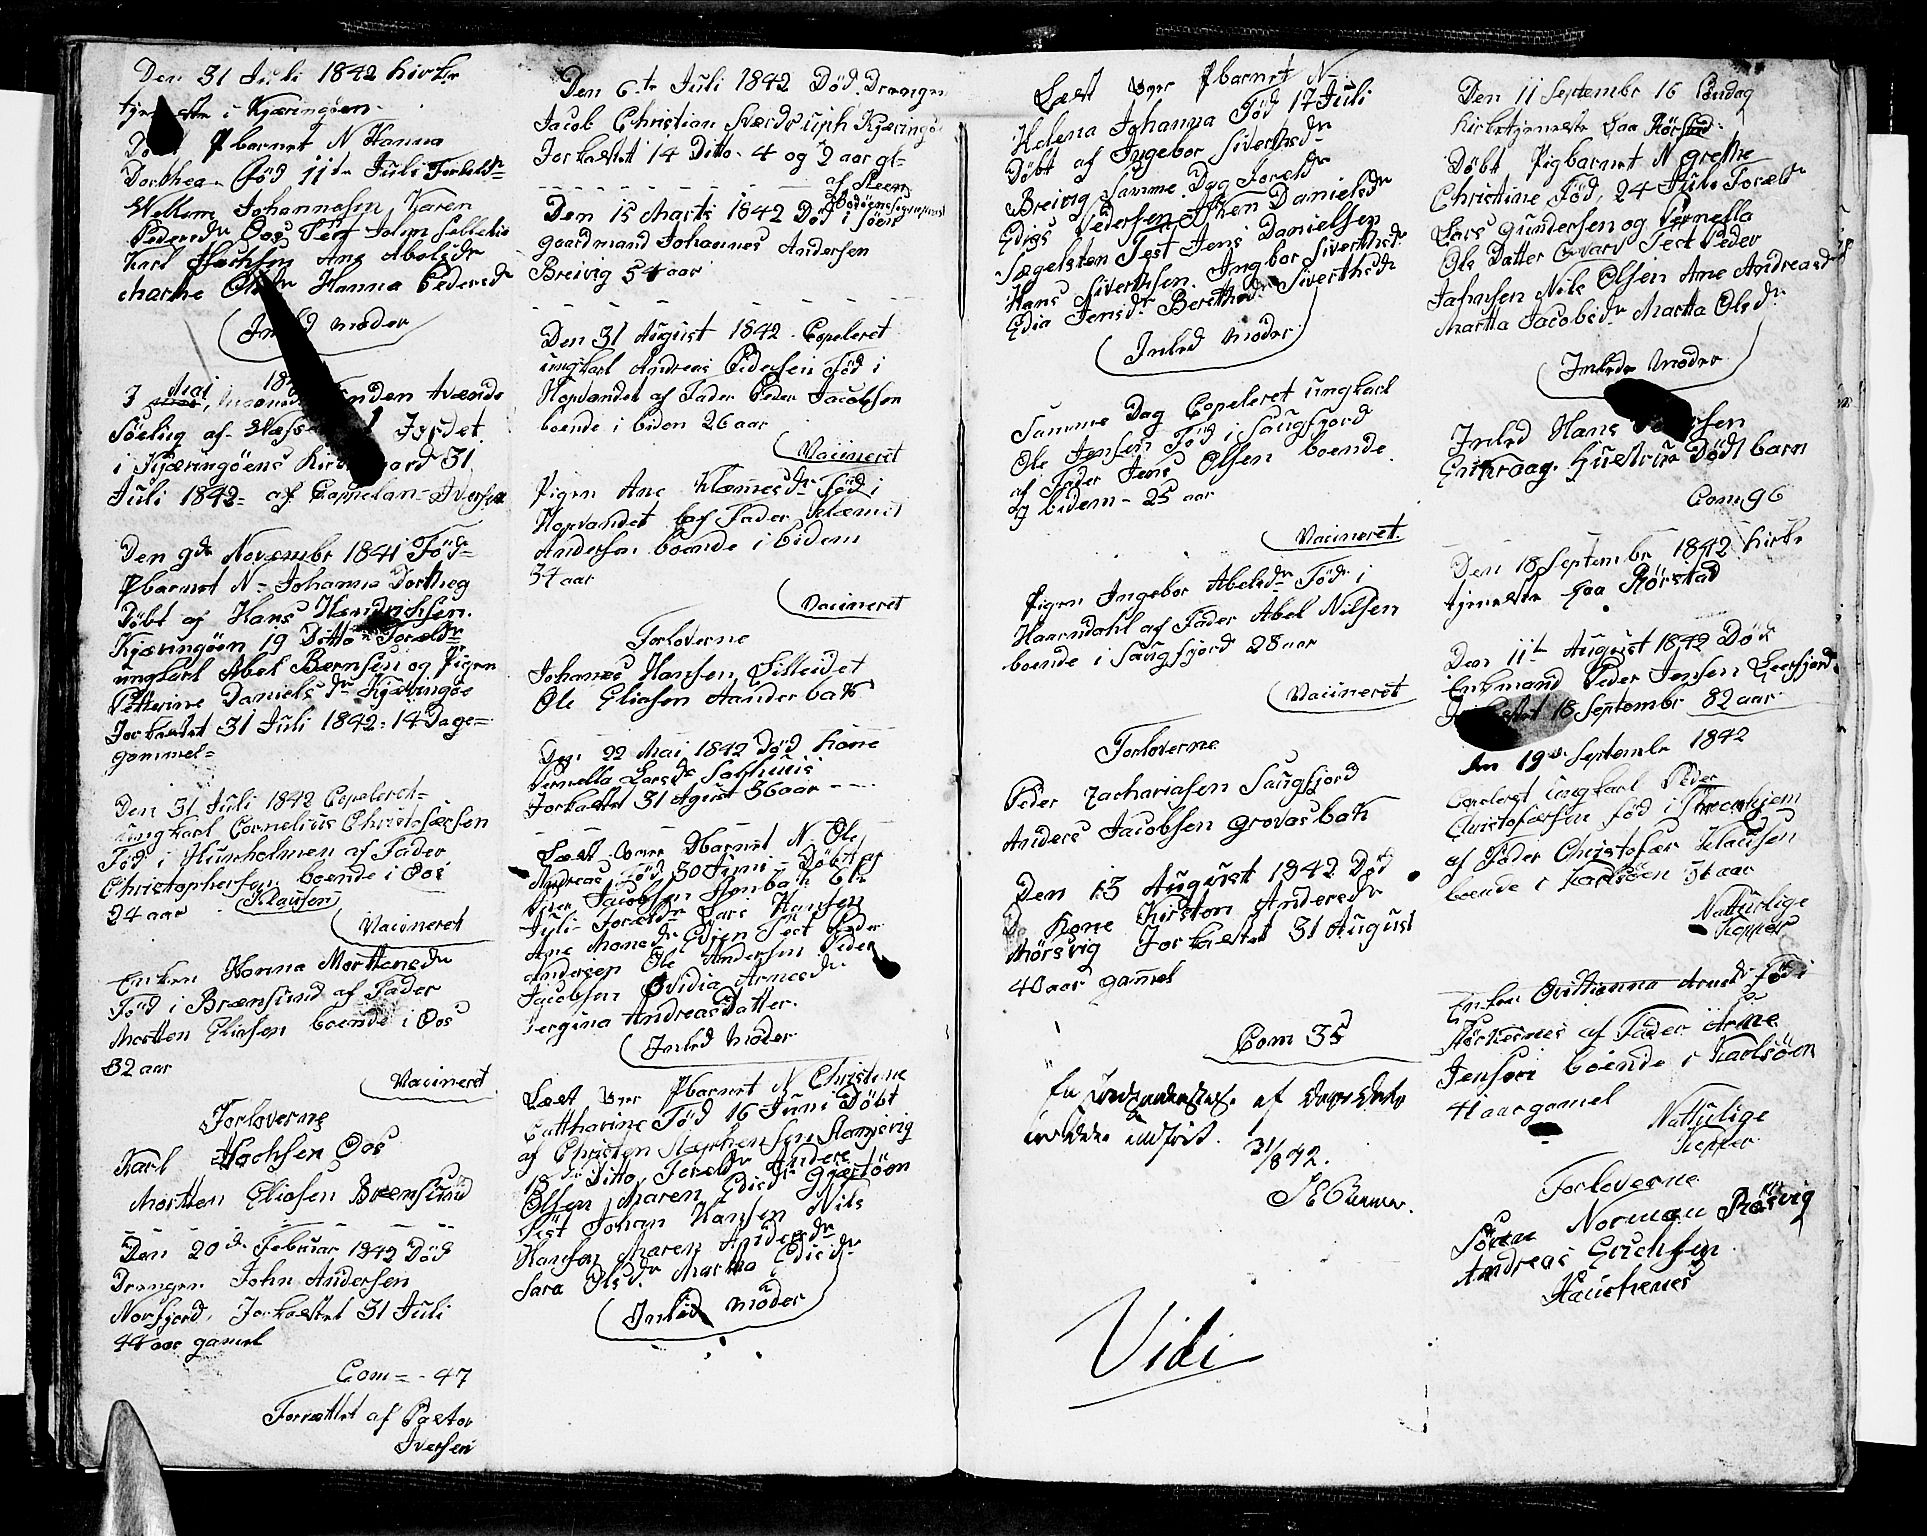 Den 31 Juli 1842 kirke
tjeneste i Kjæringøen
Pbarnet N Hanna
Dorthea Föd 11te Juli Foreldr
Wellom Johannesen Karen
Pedersdr Oos Test John
Karl Hachsen Ane Abelsdr
Marthe Olsdr Hanna Pedersdr
Inled moder
I Mai
Söeling af Jordet
i Kjæringöens Kirkegaard 31
Juli 1842 - af Cappelan Iversen
Den 9de Novembr 1841 Föd
Pbarnet N - Johanna Dorthea
Döbt af Hans Hendrichsen
Kjæringöen 19 Ditto Foreldr
ungkarl Abel Bernsen og Pigen
Petterine Danielsdr Kjæringöe
Jorkastet 31 Juli 1842 - 14 Dage
gammel
Den 31 Juli 1842 Copeleret
ungkarl Cornelius Christofersen
Föd i Hunholmen af Fader
Christophersen boende i Oos
Klausen
34 aar
Vaxineret
Enken Hanna Morttensdr
Föd i Brænsund af Fader
Mortten Eliasen boende i Oos
32 aar
Vaxineret
Forloverne
Karl Hachsen Oos
Mortten Eliasen Brensund
Den 20de Februar 1842 Död
Drengen John Andersen
Norfjord, Jorkastet 31 Juli
44 aar gamel
Com = - 47
Forrettet af Pastor
Iversen
Den 6te Juli 1842 Död Drengen
Jacob Christian Sverdruph Kjæringö
Jorkastet 14 Ditto - 4 og ½ aar gl
af Steen
Den 15 Marts 1842 Död i Söen
gaardmand Johannes Andersen
Breivig 54 aar
Den 31 August 1842 Copeleret
ungkarl Andreas Pedersen Föd i
Hopvandet af Fader Peder Jacobsen
boende i bidem 26 aar
Vaxineret
Pigen Ane Klemesdr Föd i
Hopvandet af Fader Klemet
Andersen boende i bidem
34 aar
Vaxineret
Forloverne
Johanes Hansen Silleidet
Ole Eliasen Aanderbak
Den 22 Mai 1842 Död kone
Pernella Larsdr
Jorkastet 31 Agust 36 aar
Læst over Dbarnet N Ole
Andreas Föd 30 Juni - Döbt af
Peder Jacobsen
Juli Foreldr Lars Hansen
Ane Monsdr Test Peder
Andersen Ole Andersen Peder
Jacobsen Ovidia Arnesdr
Jergina Andreasdatter
Inled moder
Læst over Pbarnet N Christine
Catharine Föd 16 Juni Döbt
af Christen Størkensen
18de Ditto Foreldr Anders
Olsen Maren Edisdr Gjærsöen
Test Johan Hansen Nils
Hansen Maren Andersdr
Sara Olsdr Martha Edisdr
Inled moder
Læst over Pbarnet N
Helena Johanna Föd 17 Juli
Döbt af Ingebor Siverthsdr
Breivig Samme Dag Foreldr
Edias Pedersen Ellen Danielsdr
Test Jens Danielsen
Hans Siverthsen Ingebor Siverthsdr
Edia Jensdr Beretha Siverthsdr
Inled moder
Samme Dag Copeleret ungkarl
Ole Jensen Föd i Saugfjord
af Fader Jens Olsen boende
i bidem - 25 aar
Vaxineret
Pigen Ingebor Abelsdr Föd i
Haarndahl af Fader Abel Nilsen
boende i Saugfjord 28 aar
Vaxineret
Forloverne
Peder Zachariasen Saugfjord
Anders Jacobsen Grovasbak
Den 13 August 1842 Död
Kone Kirsten Andersdr
Mörsvig Jorkastet 31 August
40 aar gamel
Com 35
31/8 42.
Vidi
Den 11 Septembr 16 Söndag
kirketjeneste paa Rörstad
Döbt Pigbarnet N Grethe
Christine Föd, 24 Juli Foreldr
Lars Gundersen og Pernella
Ols Datter Test Peder
Jahnsen Nils Olsen Ane Andreasdr
Martta Jacobsdr Martta Olsdr
Inlede moder
Inled Hans
Hustrue Dödt barn
Com 96
Den 18 Septembr 1842 kirke
tjeneste paa Rörstad
Den 11te August 1842 Död
Enkmand Peder Jensen Leerfjord
Jorkastet 18 Septembr 82 aar
den 19de Septembr 1842
Copeleret ungkarl Peder
Christofersen föd i Tronhjem
af Fader Christofer Klausen
boende i Karlsöen 31 aar
Natturlige
Kopper
Enken Arnesdr Föd i
af Fader Arne
Jensen boende i Karlsöen
41 aar gamel
Natturlige
Kopper
Forloverne
Sören Norman Rösvig
Andreas Erichsen